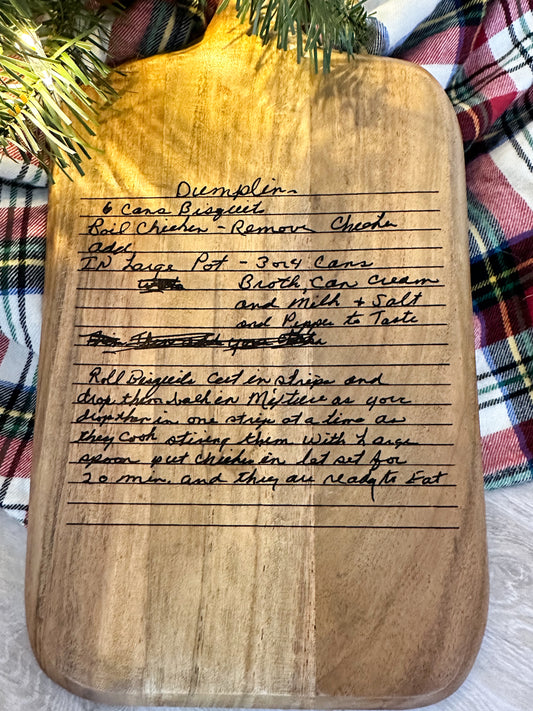 Dumplin
6 Cans Bisquits
Boil Chicken - Remove Chicken
add
IN Large Pot - 3 or 4 Cans
Broth, Can Cream
and Milk + Salt
and Pepper to Taste
Roll Bisquits Cut in strips and
drop them in Mixture as you
drop them in one strip at a time as
they Cook stiring them with Large
spoon put Chicken in let set for
20 min. and they are ready to Eat